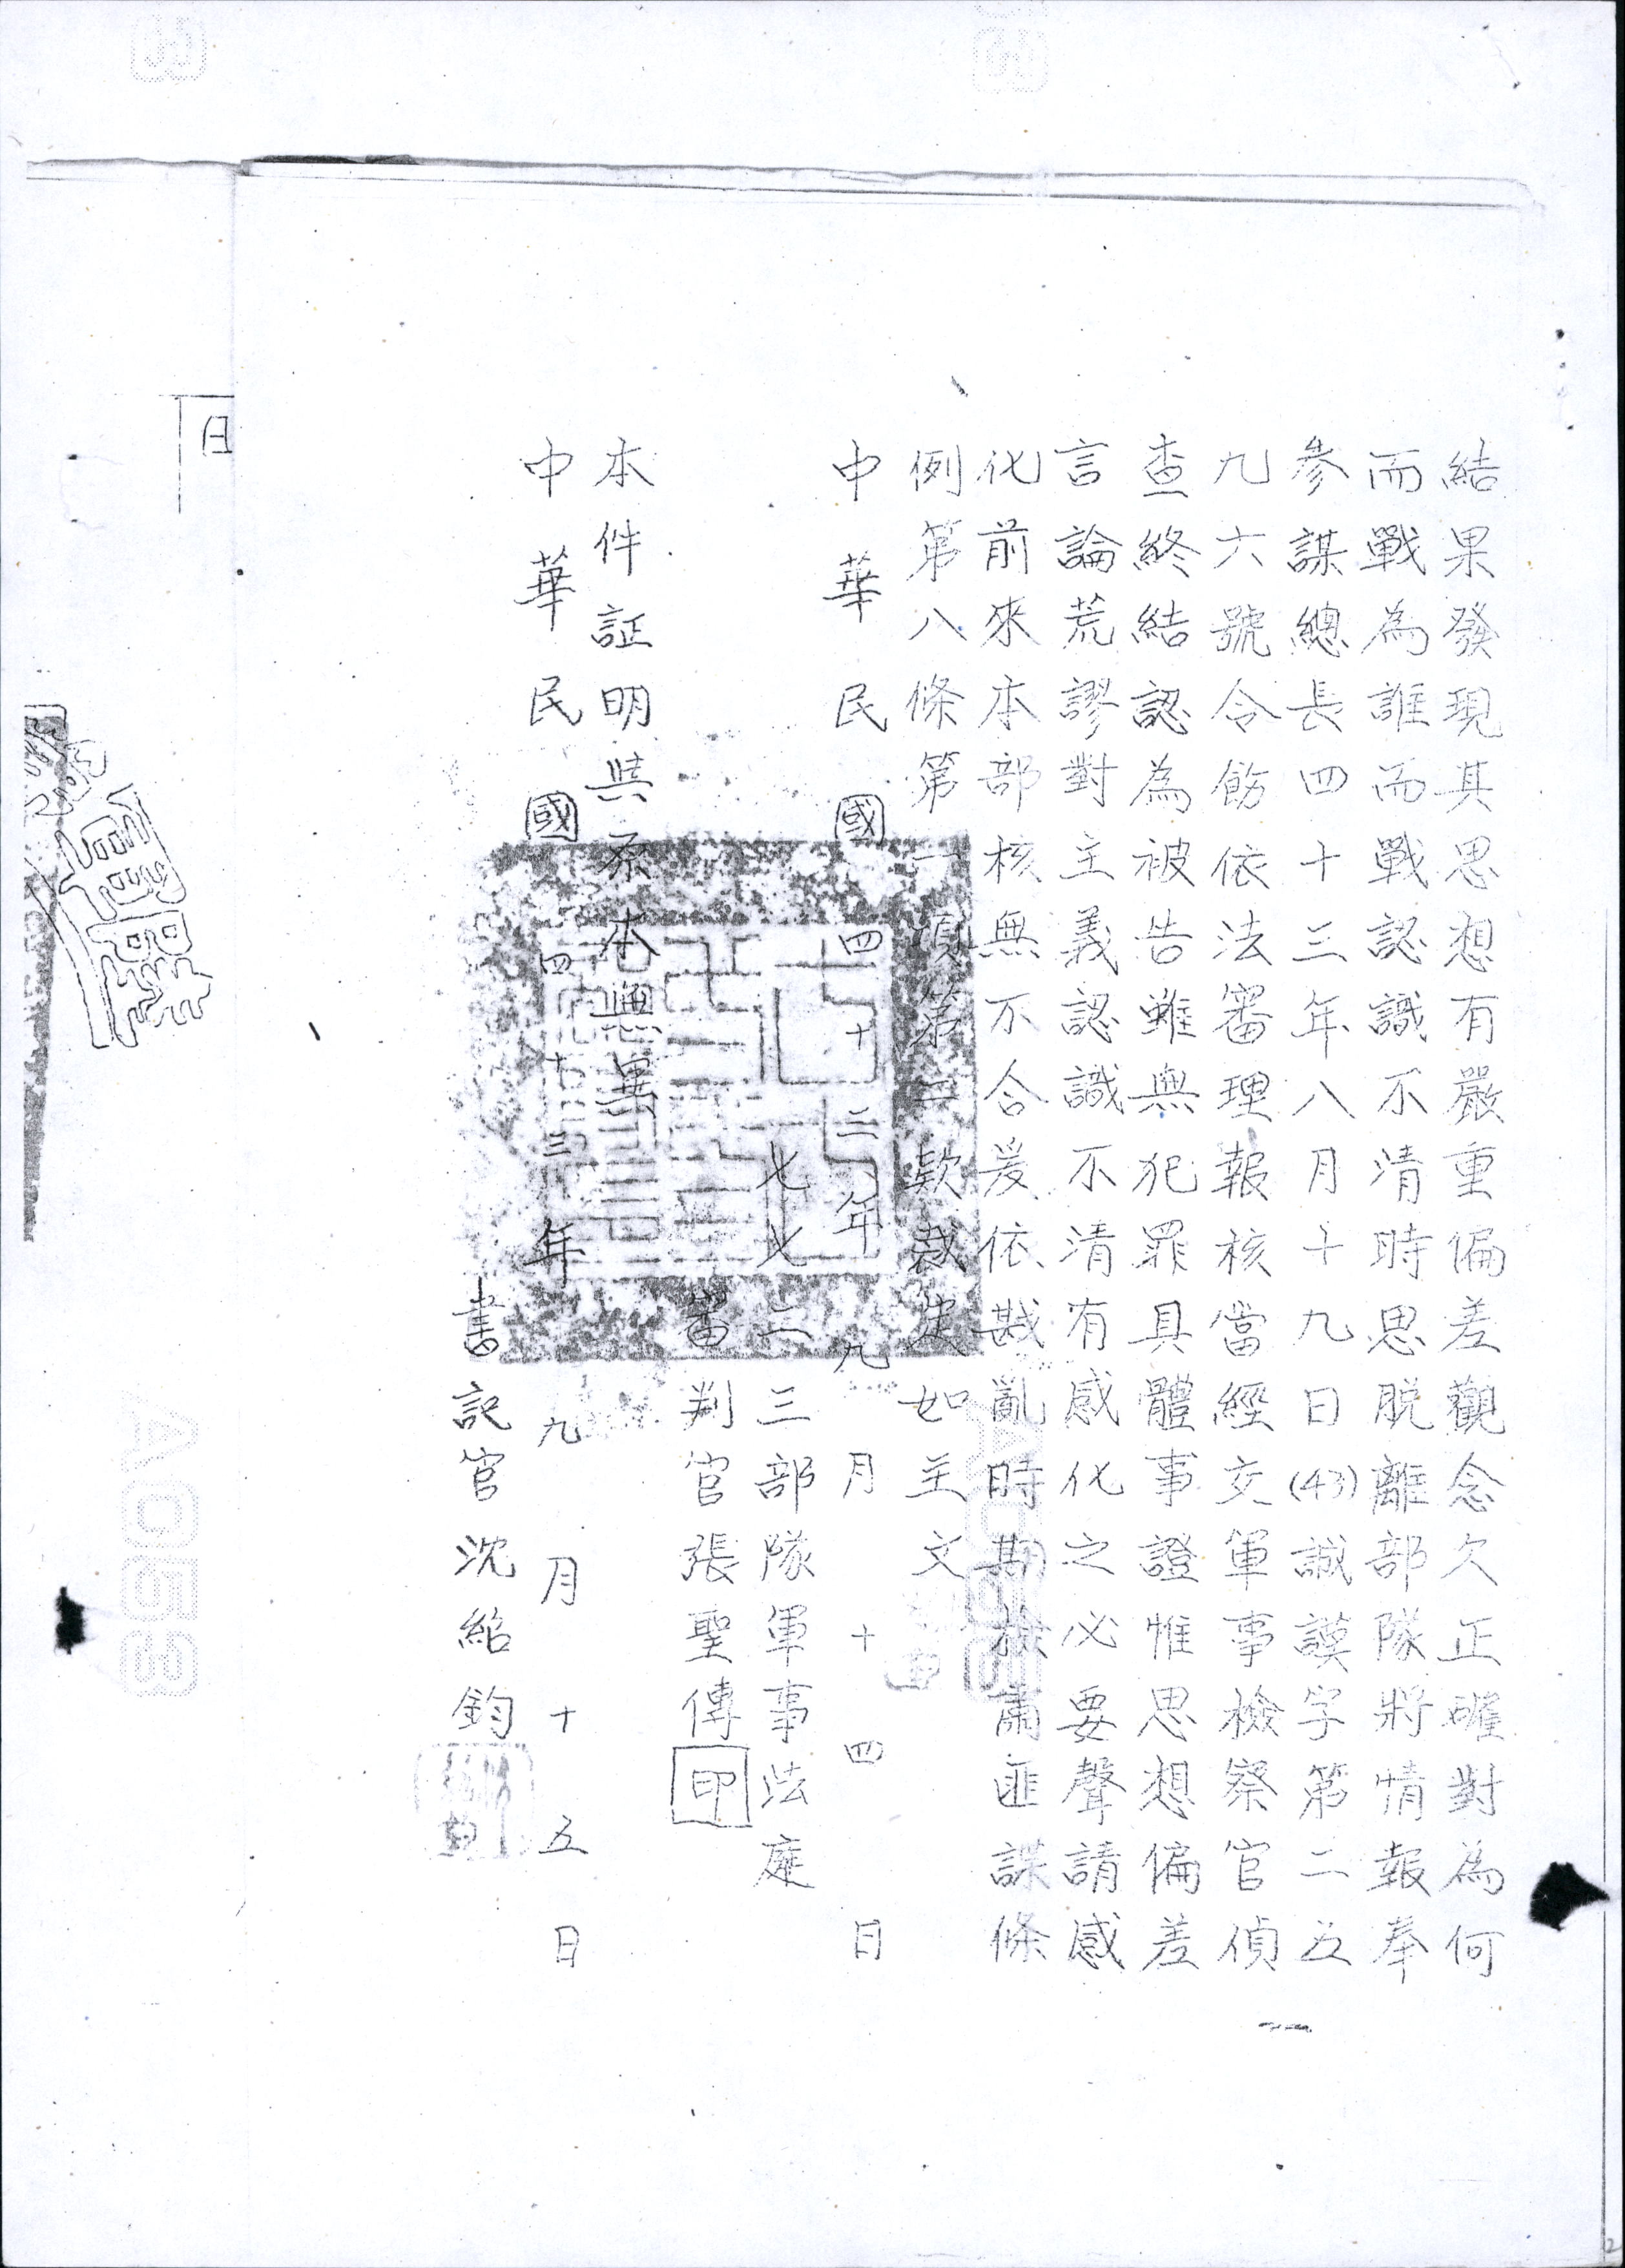 結果發現其思想有嚴重偏差觀念欠正確對為何
而戰為誰而戰認識不清時思脫離部隊將情報奉
參謀總長四十三年八月十九日(43)誠謨字第二五
九六號令飭依法審理報核當經交軍事檢察官偵
查終結認為被告雖無犯罪具體事證惟思想偏差
言論荒謬對主義認識不清有感化之必要聲請感
化前來本部核無不合爰依戡亂時期檢肅匪諜條
例第八條第一項第二款裁定如主文
中華民國四十三年九月十四日
七七二三部隊軍事法庭
審判官張聖傳印
本件証明與原本無異
中華民國四十三年九月十五日
書記官沈紹鈞
日